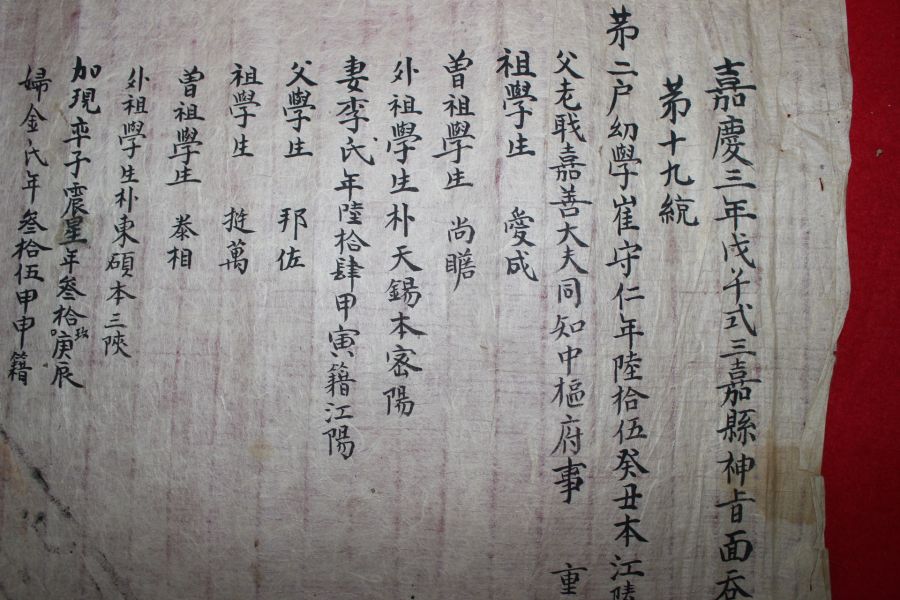 嘉慶三年戊午式三嘉縣神旨面吞
苐十九統
苐二户幼學崔守仁年陸拾伍癸丑本江陵
父老職嘉善大夫同知中樞府事 重
祖學生 愛成
曽祖學生 尚瞻
外祖學生朴天錫本密陽
妻李氏年陸拾肆甲寅籍江陽
父學生 邦佐
祖學生 挺萬
曽祖學生 泰相
外祖學生朴東碩本三陝
加現率子震星年叄拾玖庚辰
婦金氏年叄拾伍甲申籍